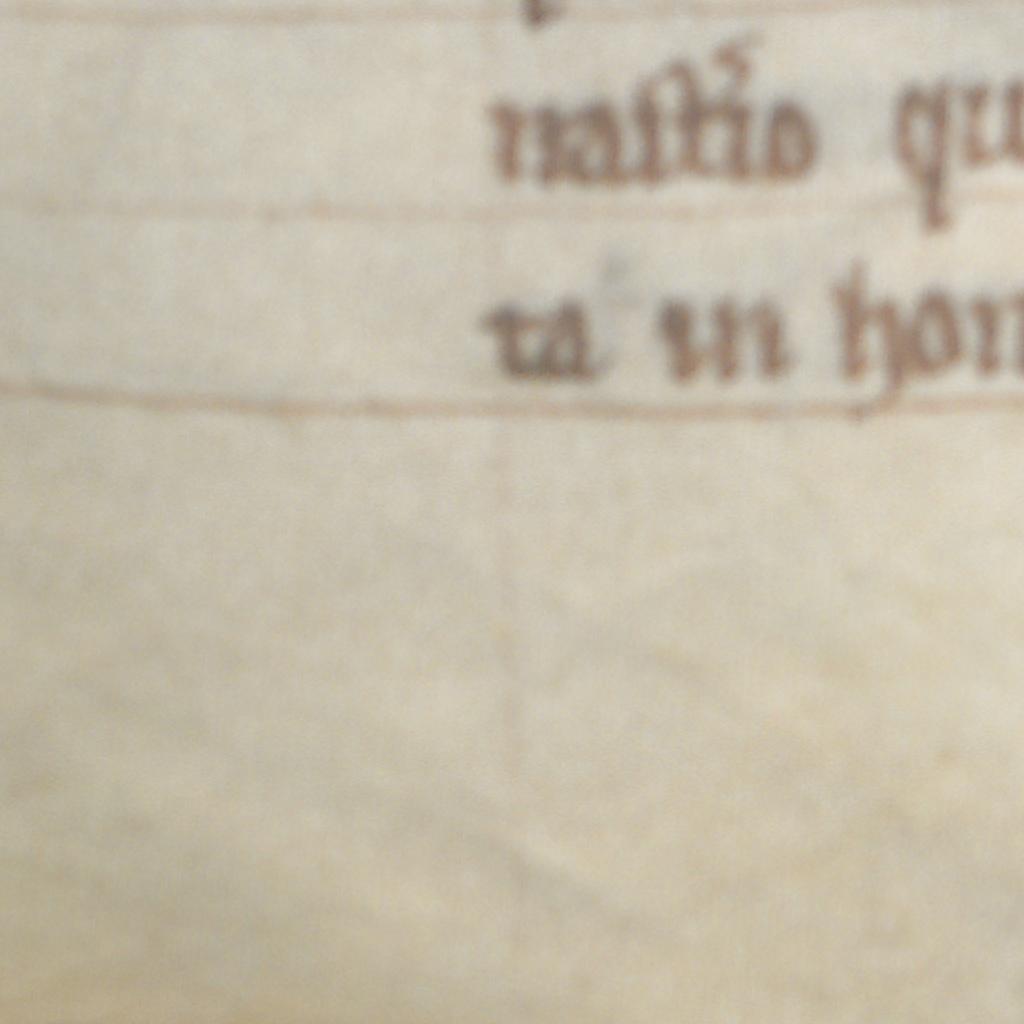 naſtio qu
ta in hon